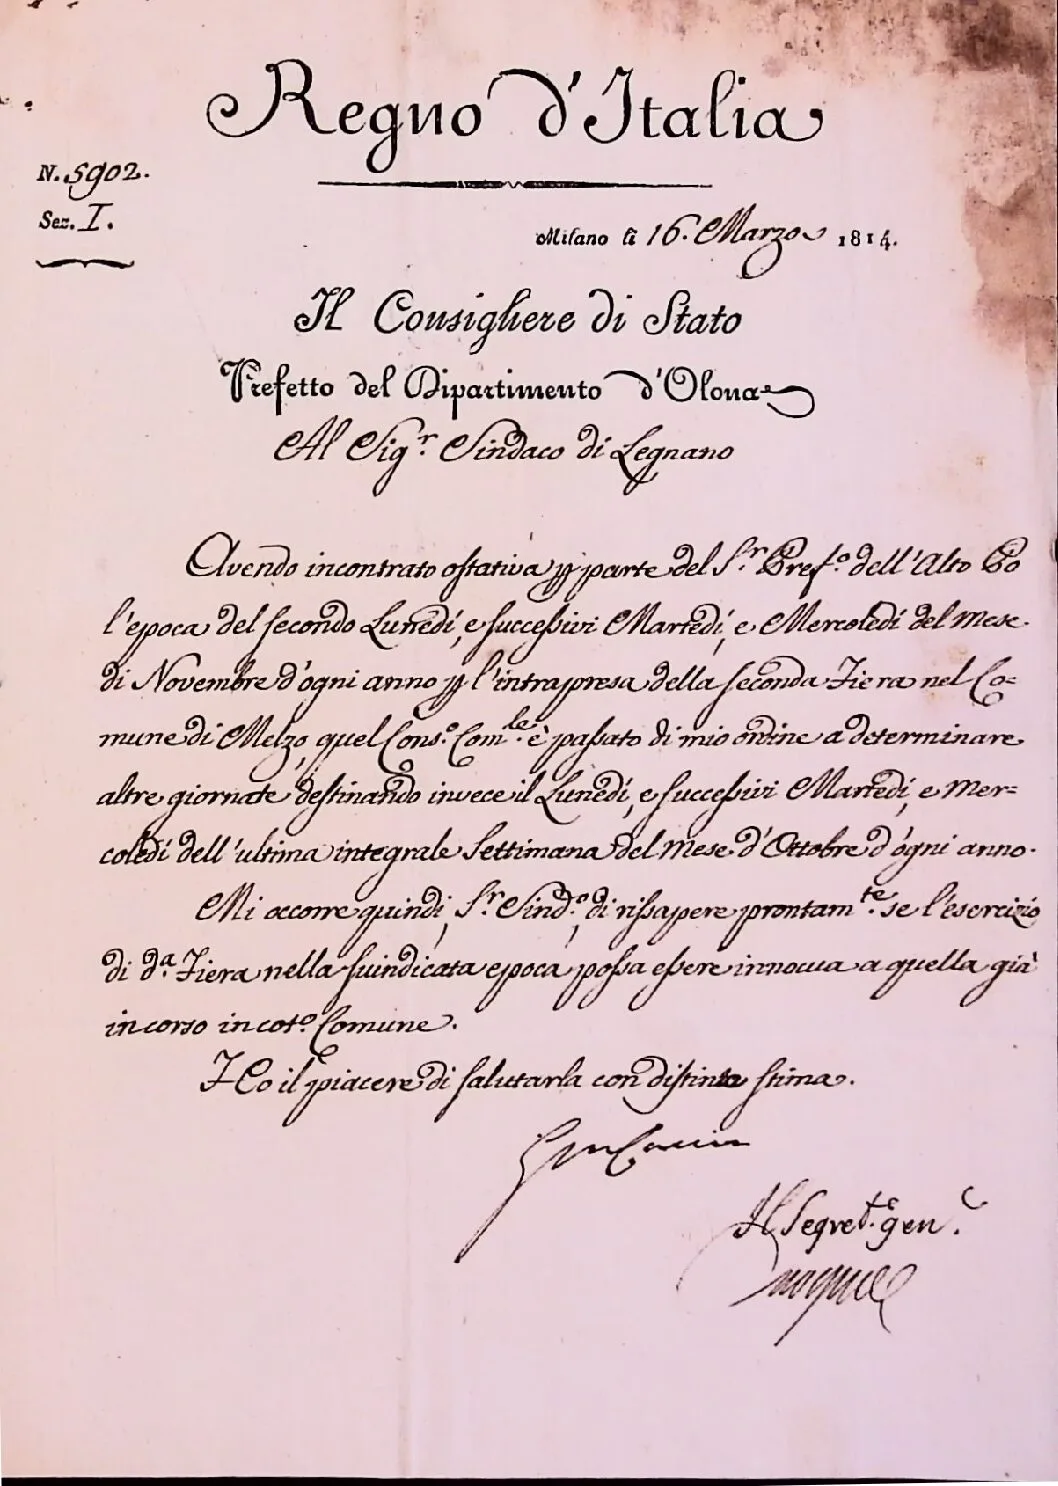 Regno d'Italia
N. 5902.
Sez. I.
Milano li 16. Marzo 1814.
Il Consigliere di Stato
Prefetto del Dipartimento d'Olona
Al Sigr. Sindaco di Legnano
Avendo incontrato ostativa pp parte del Sr. Prefo. dell'Alto Po
l'epoca del secondo Lunedì, e successivi Martedì, e Mercoledì del mese
di Novembre d'ogni anno pp l'intrapresa della seconda Fiera nel Co=
mune di Melzo, quel Conso. Comle. è passato di mio ordine a determinare
altre giornate destinando invece il Lunedì, e successivi Martedì, e Mer=
coledì dell'ultima integrale Settimana del mese d'Ottobre d'ogni anno.
Mi occorre quindi, Sr. Sindo., di rissapere prontamte. se l'esercizio
di da. Fiera nella suindicata epoca possa essere innocua a quella già
in corso in coto. Comune.
Ho il piacere di salutarla con distinta stima.
Il Segret.e gen.e